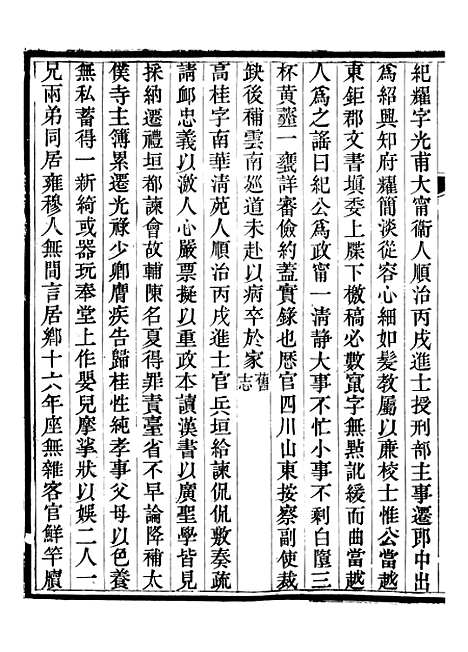 紀耀字光甫大甯衞人順治丙戌進士授刑部主事遷郎中出
爲紹興知府耀簡淡從容心細如髮教屬以廉校士惟公當越
東鉅郡文書塡委上牒下檄稿必數竄字無黙訛緩而當越
人爲之謠曰紀公爲政甯一清靜大事不忙小事不剩白簠三
杯黃虀一甕詳審儉約蓋實錄也歴官四川山東按察副使裁
缺後補雲南廵道未赴以病卒於家舊志
高桂字南華清苑人順治丙戌進士官兵垣給諫侃侃敷奏疏
請卹忠義以激人心嚴票擬以重政本讀漢書以廣聖學皆見
採納遷禮垣都諫會故輔陳名夏得罪責臺省不早論降補太
僕寺主簿累遷光祿少卿膺疾告歸桂性純孝事父母以色養
無私蓄得一新綺或器玩奉堂上作嬰兒摩挲狀以娛二人一
兄兩弟同居雍穆人無間言居鄉十六年座無雜客官鮮竿牘